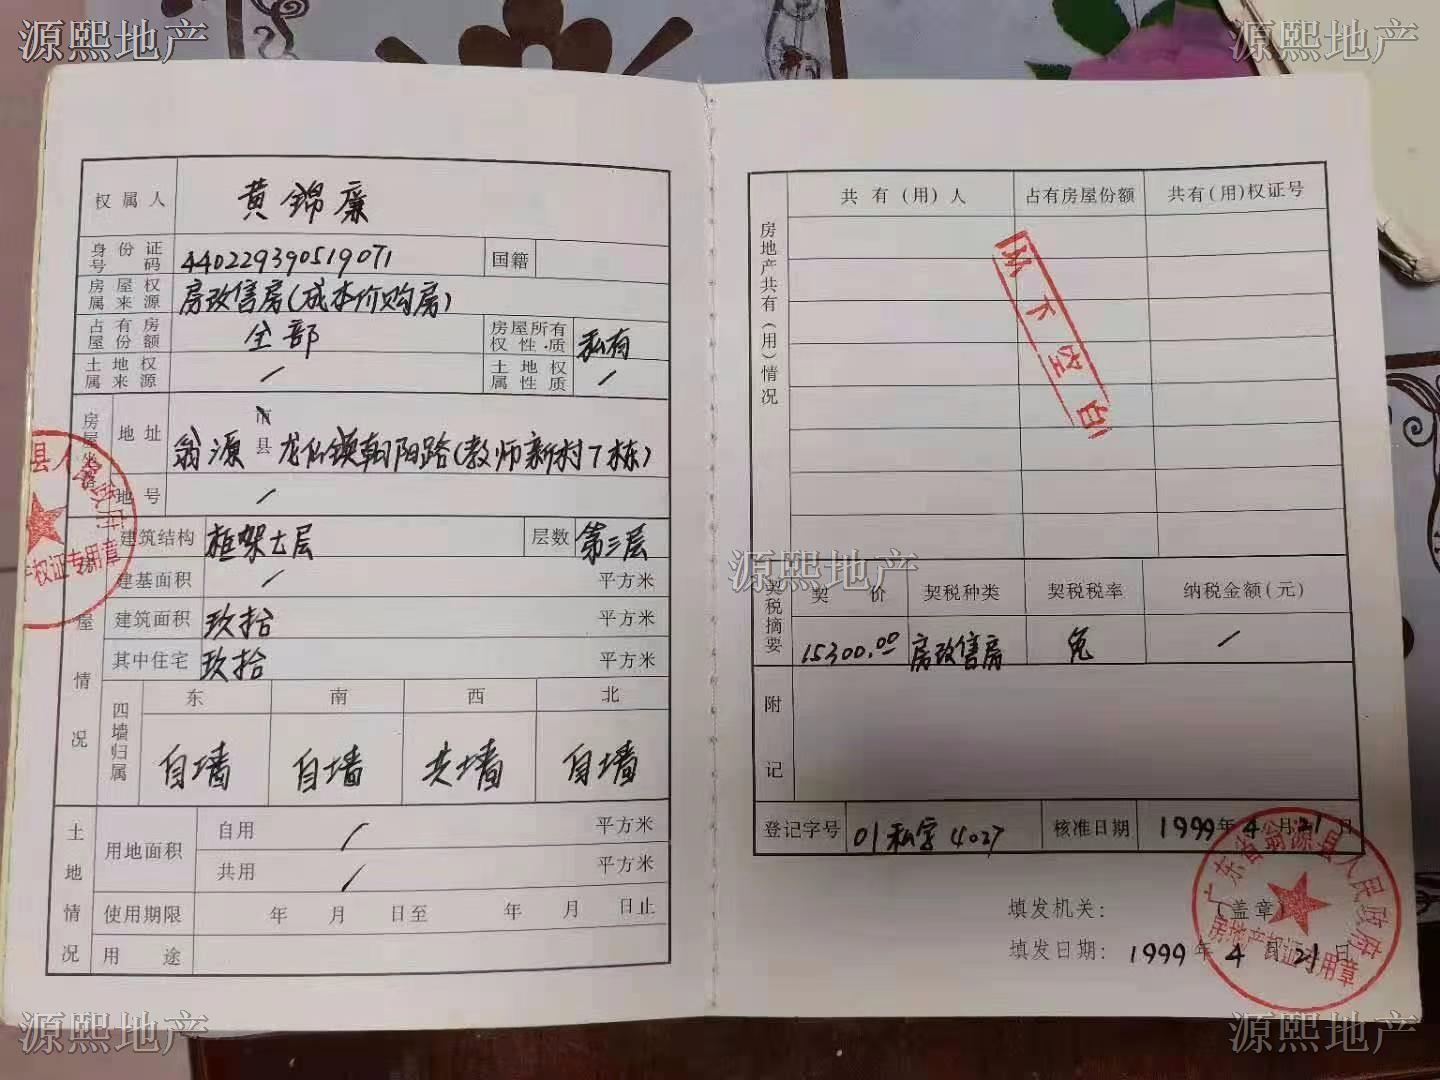 源熙地产
源熙地产
权属人 黄锦廉
身份证号码 440229390519071 国籍
房屋权属来源 房改售房(成本价购房)
占有房屋份额 全部 房屋所有权性质 私有
土地权属来源 / 土地权属性质 /
房屋坐落 地址 翁源 市县 龙仙镇朝阳路(教师新村7栋)
地号 /
建筑结构 框架七层 层数 第三层
建基面积 / 平方米
建筑面积 玖拾 平方米
其中住宅 玖拾 平方米
屋情况
四墙归属 东 南 西 北
自墙 自墙 共墙 自墙
土地情况 用地面积 自用 / 平方米
共用 / 平方米
使用期限 年 月 日至 年 月 日止
用途
县人民政府
产权证专用章
房地产共有(用)情况 共有(用)人 占有房屋份额 共有(用)权证号
以下空白
源熙地产
契税摘要 契价 契税种类 契税税率 纳税金额(元)
15300.00 房改售房 免 /
附记
登记字号 01私字4027 核准日期 1999年4月21日
填发机关: (盖章)
填发日期: 1999年4月21日
广东省翁源县人民政府
房地产权证专用章
源熙地产
源熙地产